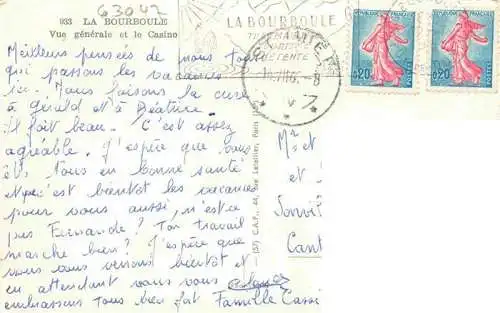 63042
933 LA BOURBOULE
Vue générale et le Casino
LA BOURBOULE
DÉTENTE
REPUBLIQUE FRANCAISE
0,20
POSTES
REPUBLIQUE FRANCAISE
0,20
POSTES
Meilleurs pensées de nous tous
qui passons les vacances
ici. Nous faisons la cure
à Gérald et à Béatrice.
Il fait beau. C'est assez
agréable. J'espère que vous
êtes tous en bonne santé
et que c'est bientôt les vacances
pour vous aussi, n'est-ce
pas Fernande? Ton travail
marche bien? J'espère que
nous vous verrons bientôt et
en attendant nous vous
embrassons tous bien fort Famille Cassi
(57) C.A.P., 44, rue Letellier, Paris
Mr et
et
Cant